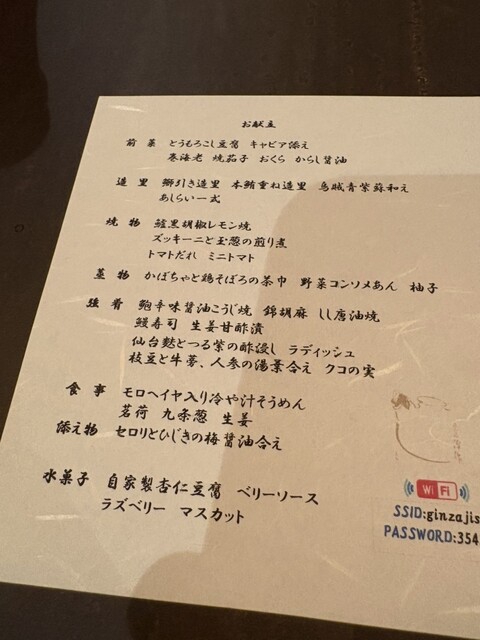 お献立
前菜 とうもろこし豆腐 キャビア添え
巻海老 焼茄子 おくら からし醤油
造里 鰤引き造里 本鮪重ね造里 烏賊青紫蘇和え
あしらい一式
焼物 鱸黒胡椒レモン焼
ズッキーニと玉葱の煎り煮
トマトだれ ミニトマト
蒸物 かぼちゃと鶏そぼろの茶巾 野菜コンソメあん 柚子
強肴 鮑辛味醤油こうじ焼 錦胡麻 しし唐油焼
鰻寿司 生姜甘酢漬
仙台麩とつる紫の酢浸し ラディッシュ
枝豆と牛蒡、人参の湯葉合え クコの実
食事 モロヘイヤ入り冷や汁そうめん
茗荷 九条葱 生姜
添え物 セロリとひじきの梅醤油合え
水菓子 自家製杏仁豆腐 ベリーソース
ラズベリー マスカット
WiFi
SSID:ginzajis
PASSWORD:354